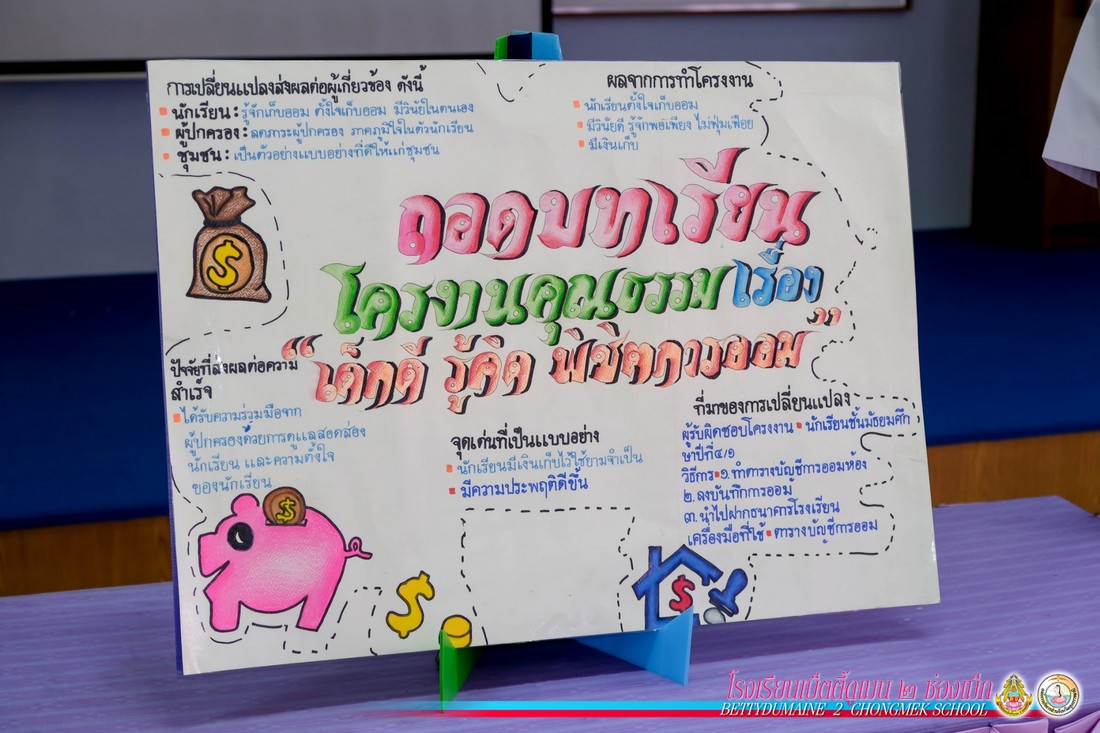 การเปลี่ยนแปลงส่งผลต่อผู้เกี่ยวข้อง ดังนี้
นักเรียน : รู้จักเก็บออม ตั้งใจเก็บออม มีวินัยในตนเอง
ผู้ปกครอง : ลดภาระผู้ปกครอง ภาคภูมิใจในตัวนักเรียน
ชุมชน : เป็นตัวอย่างแบบอย่างที่ดีให้แก่ชุมชน
ผลจากการทำโครงงาน
นักเรียนตั้งใจเก็บออม
มีวินัยดี รู้จักพอเพียง ไม่ฟุ่มเฟือย
มีเงินเก็บ
ถอดบทเรียน
โครงงานคุณธรรมเรื่อง
“เด็กดี รู้คิด พิชิตการออม”
ปัจจัยที่ส่งผลต่อความ
สำเร็จ
ได้รับความร่วมมือจาก
ผู้ปกครองด้วยการดูแลสอดส่อง
นักเรียน และความตั้งใจ
ของนักเรียน
จุดเด่นที่เป็นแบบอย่าง
นักเรียนมีเงินเก็บไว้ใช้ยามจำเป็น
มีความประพฤติดีขึ้น
ที่มาของการเปลี่ยนแปลง
ผู้รับผิดชอบโครงงาน นักเรียนชั้นมัธยมศึก
ษาปีที่๔/๑
วิธีการ ๑.ทำตารางบัญชีการออมห้อง
๒.ลงบันทึกการออม
๓.นำไปฝากธนาคารโรงเรียน
เครื่องมือที่ใช้ ตารางบัญชีการออม
โรงเรียนเบ็ตตี้ดูเมน ๒ ช่องเม็ก
BETTYDUMAINE 2 CHONGMEK SCHOOL